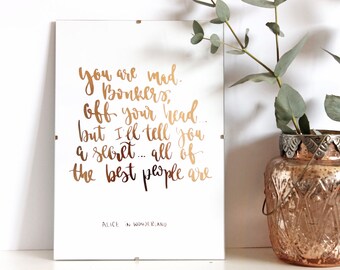 you are mad.
Bonkers,
off your head...
but I'll tell you
a secret... all of
the best people are
ALICE IN WONDERLAND